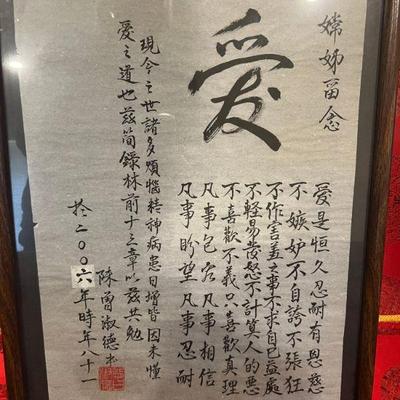 嫦姊留念
愛
愛是恒久忍耐有恩慈
不嫉妒不自誇不張狂
不作害羞之事不求自己益處
不輕易發怒不計算人的惡
不喜歡不義只喜歡真理
凡事包容凡事相信
凡事盼望凡事忍耐
現今之世諸多煩惱精神病患日增皆因未懂
愛之道也茲簡錄林前十三章以茲共勉
於二00六年時年八十一
陳曾淑德書